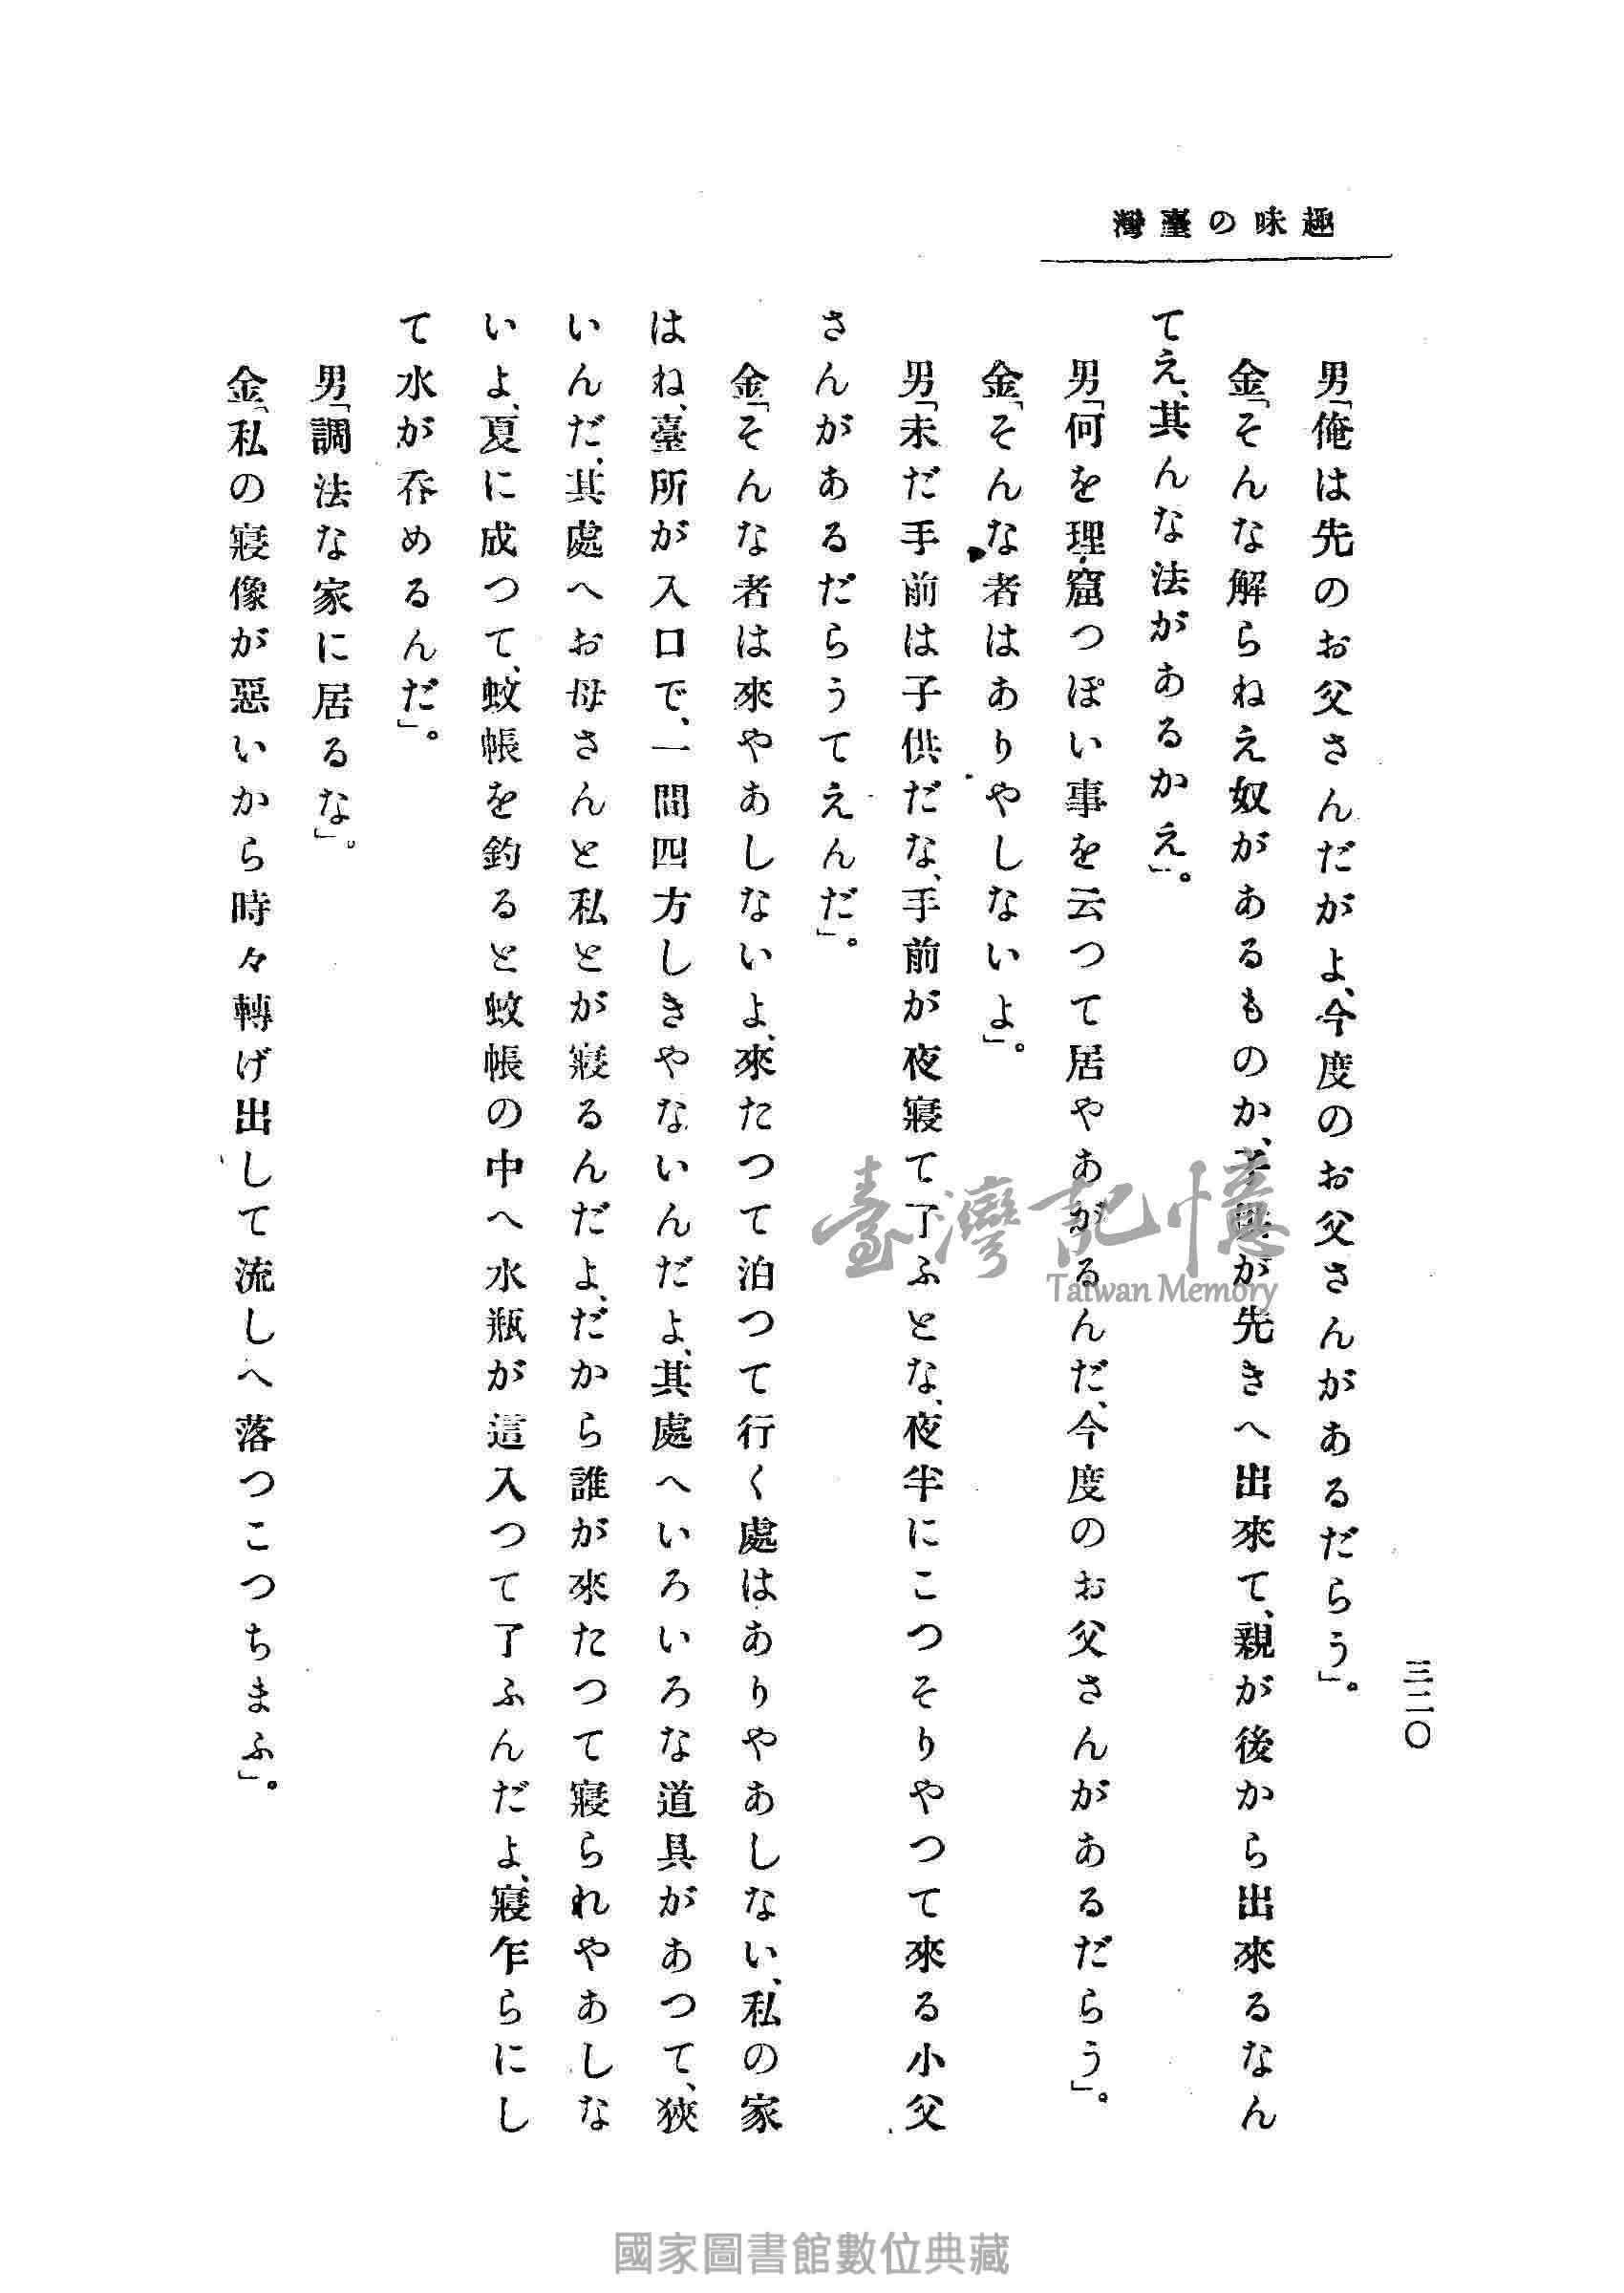 趣味の臺灣
三二〇
男「俺は先のお父さんだがよ、今度のお父さんがあるだらう」。
金「そんな解らねえ奴があるものか、子供が先きへ出來て、親が後から出來るなん
てえ、其んな法があるかえ」。
男「何を理窟つぽい事を云つて居やあがるんだ、今度のお父さんがあるだらう」。
金「そんな者はありやしないよ」。
男「未だ手前は子供だな、手前が夜寢て了ふとな、夜半にこつそりやつて來る小父
さんがあるだらうてえんだ」。
金「そんな者は來やあしないよ、來たつて泊つて行く處はありやあしない、私の家
はね、臺所が入口で、一間四方しきやないんだよ、其處へいろいろな道具があつて、狹
いんだ、其處へお母さんと私とが寢るんだよ、だから誰が來たつて寢られやあしな
いよ、夏に成つて、蚊帳を釣ると蚊帳の中へ水瓶が這入つて了ふんだよ、寢乍らにし
て水が呑めるんだ」。
男「調法な家に居るな」。
金「私の寢像が惡いから時々轉げ出して流しへ落つこつちまふ」。
臺灣記憶
Taiwan Memory
國家圖書館數位典藏